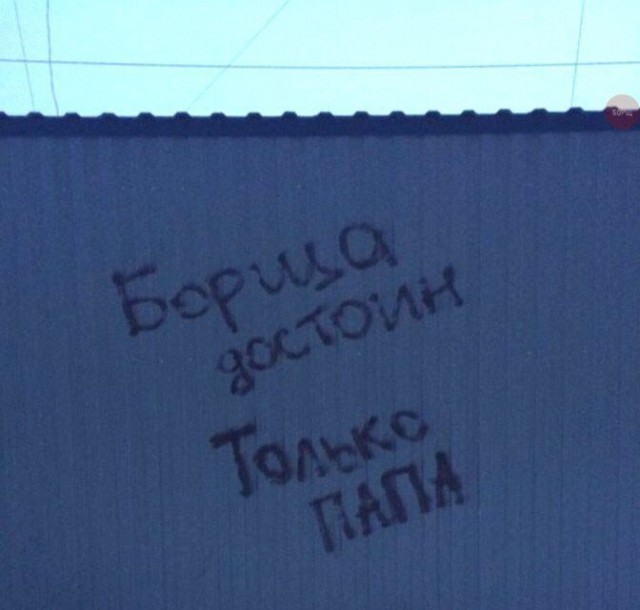 Борща
достоин
Только
ПАПА
БОРЩ